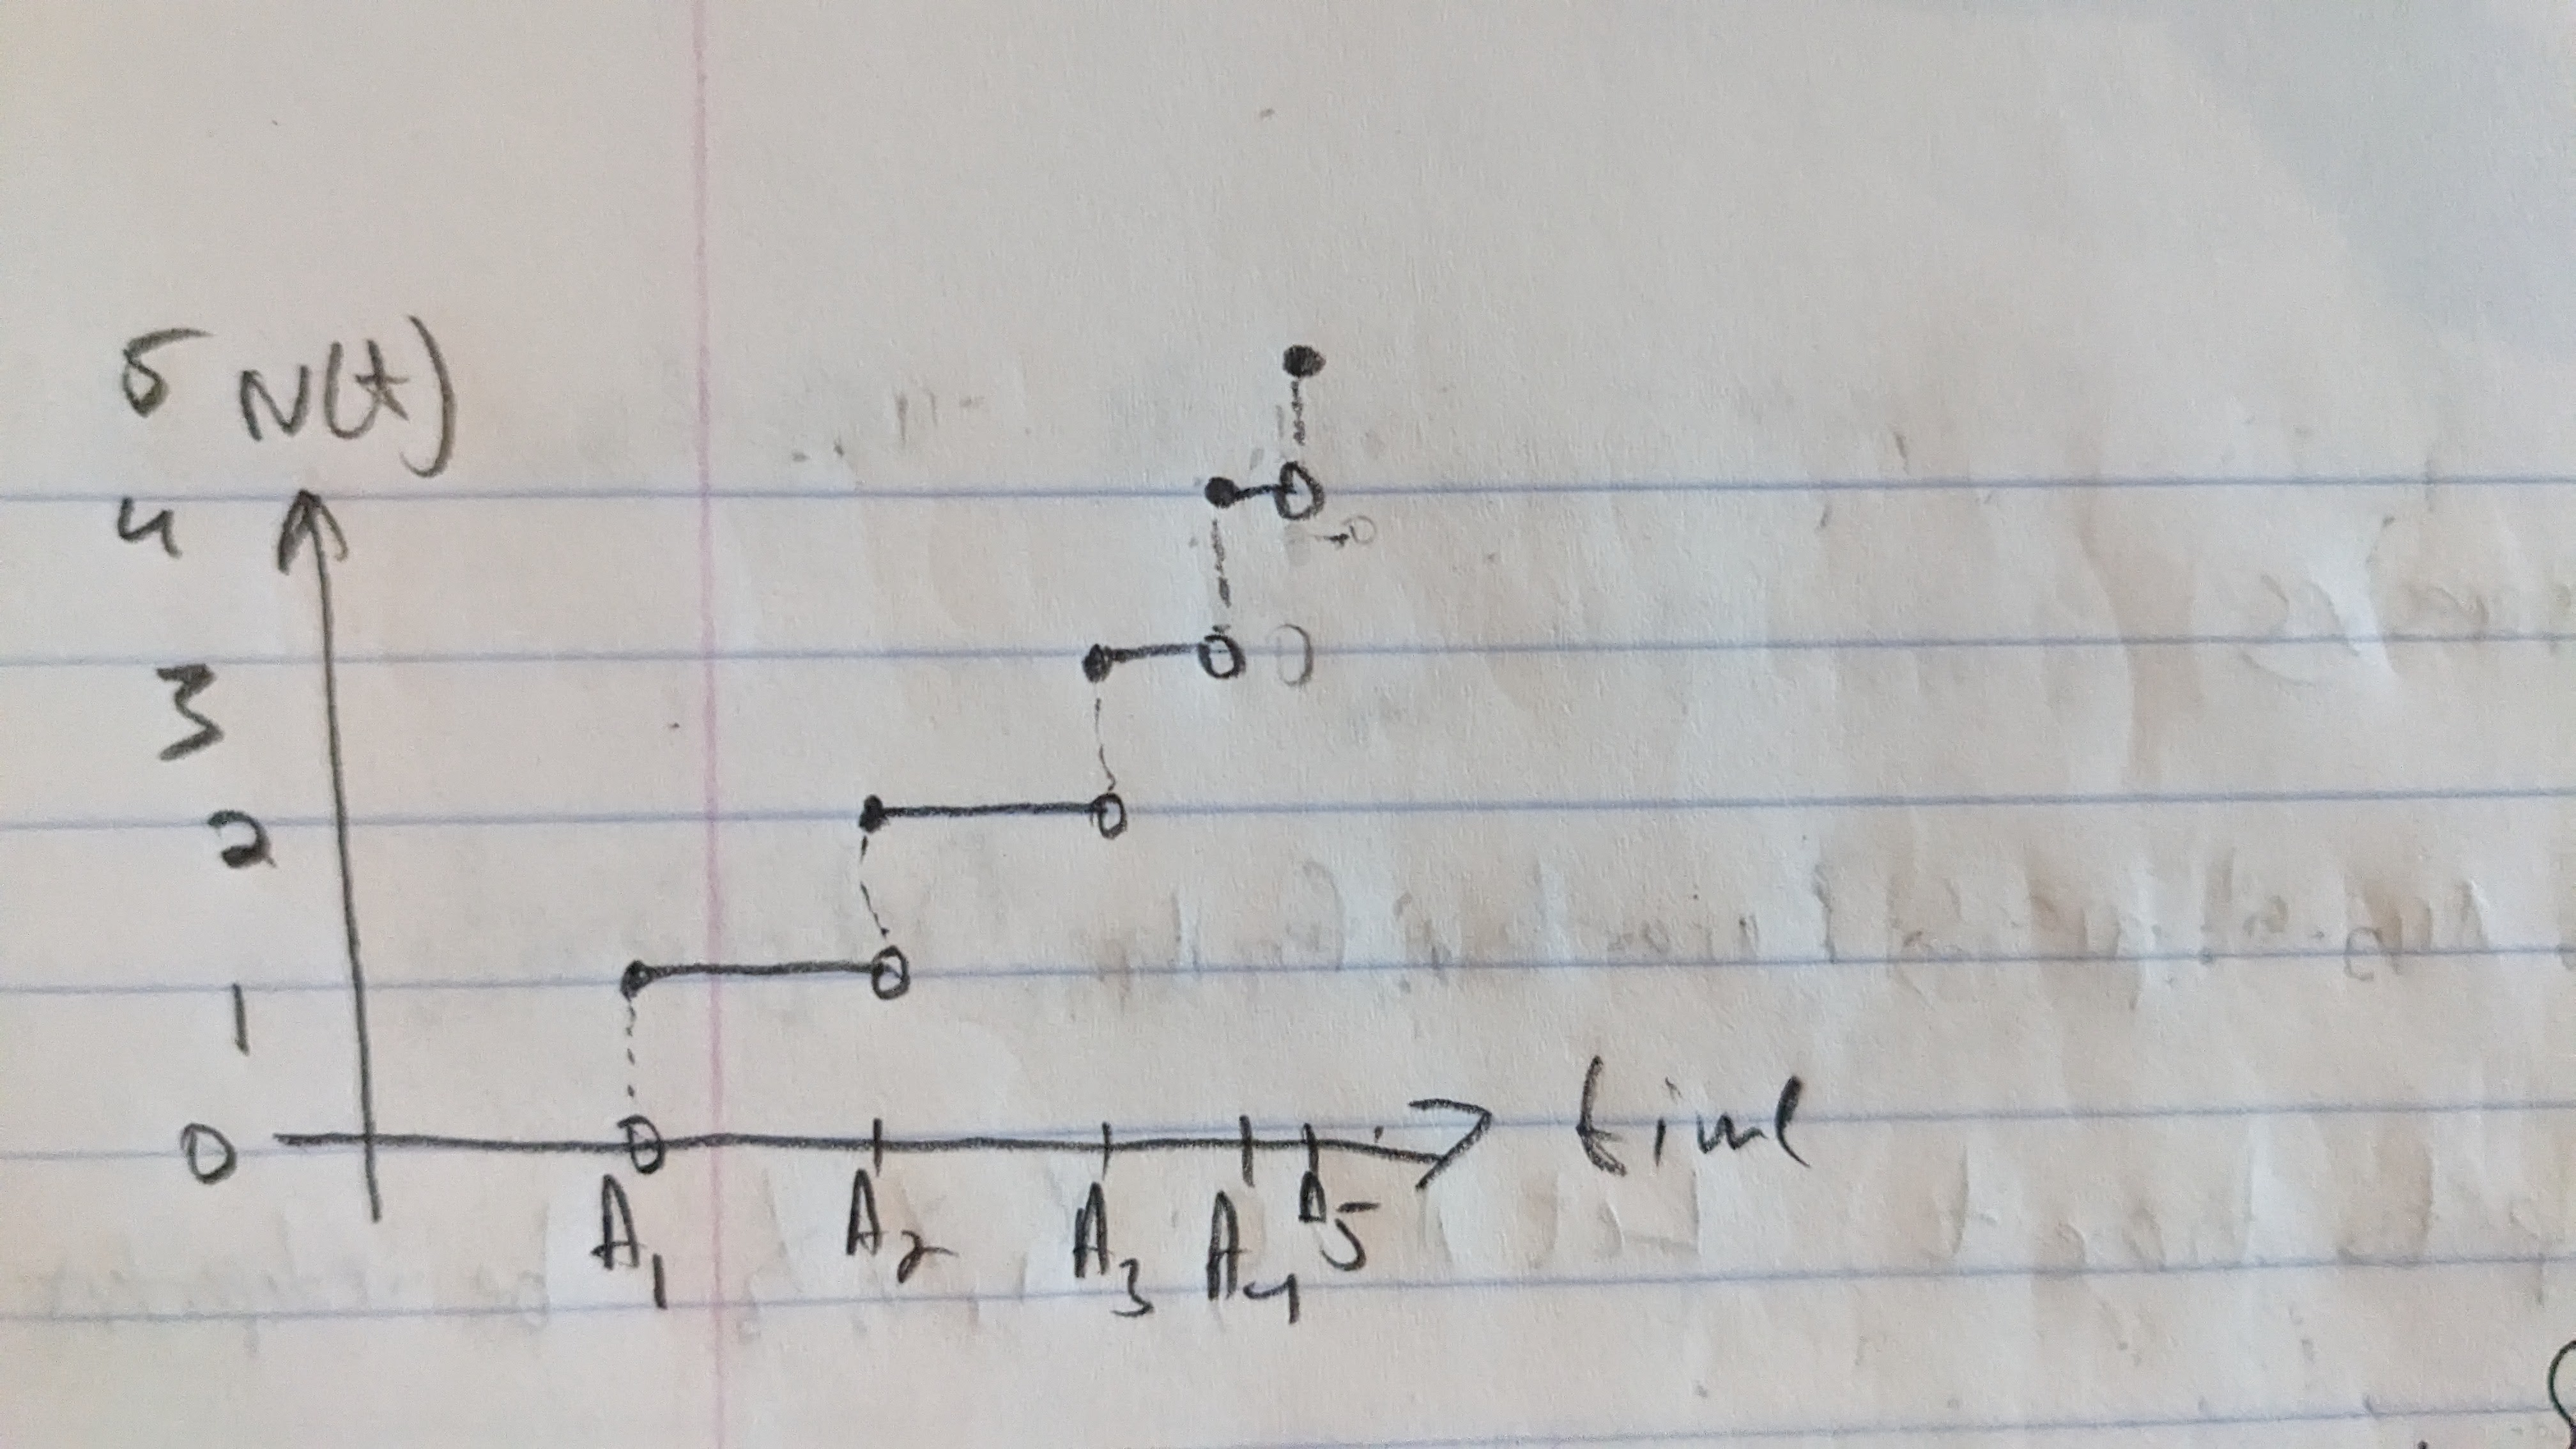 5 N(t)
4
3
2
1
0 time
A₁ A₂ A₃ A₄ A₅